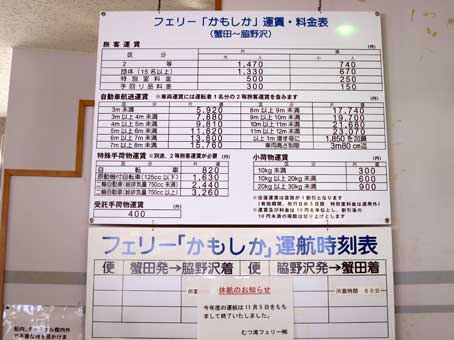 フェリー「かもしか」運賃・料金表
(蟹田～脇野沢)
旅客運賃 (円)
区分 大人 小人
2等 1,470 740
団体(15名以上) 1,330 670
特別室料金 500 250
手回り品料金 300 150
自動車航送運賃 ※車両運賃には運転者1名分の2等旅客運賃を含みます (円)
3m未満 5,920 8m以上9m未満 17,740
3m以上4m未満 7,880 9m以上10m未満 19,700
4m以上5m未満 9,810 10m以上11m未満 21,680
5m以上6m未満 11,820 11m以上12m未満 23,070
6m以上7m未満 13,800 12m以上1m増す毎に 1,850を加算
7m以上8m未満 15,760 車両高さ制限 3m80cm迄
特殊手荷物運賃 ※別途、2等旅客運賃が必要 (円)
自転車 820
原動機付自転車(125cc以下) 1,630
二輪自動車(総排気量750cc未満) 2,440
二輪自動車(総排気量750cc以上) 3,260
受託手荷物運賃
400
小荷物運賃 (円)
10kg未満 300
10kg以上20kg未満 600
20kg以上30kg未満 900
※往復運賃は復路が1割引となります
フェリー「かもしか」運航時刻表
便 蟹田発→脇野沢着 便 脇野沢発→蟹田着
所要時間 60分
休航のお知らせ
今年度の運航は11月5日をもち
まして終了いたしました。
むつ湾フェリー㈱